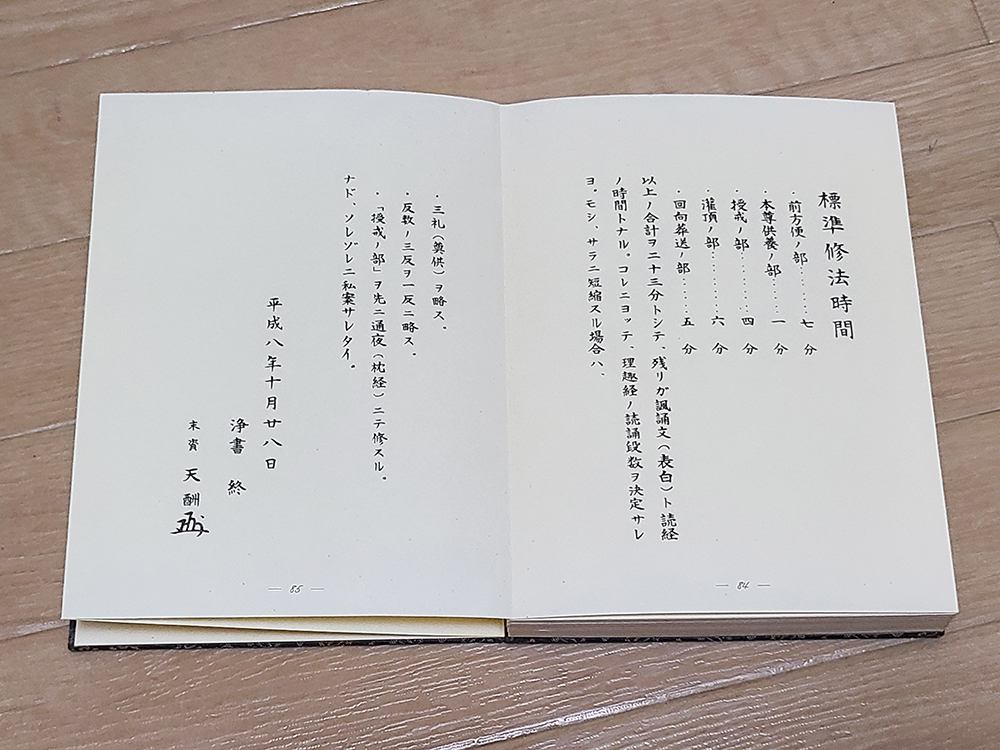 標準修法時間
・前方便ノ部………七分
・本尊供養ノ部……一分
・授戒ノ部…………四分
・灌頂ノ部…………六分
・回向葬送ノ部……五分
以上ノ合計ヲ二十三分トシテ、残リガ諷誦文(表白)ト読経
ノ時間トナル。コレニヨッテ、理趣経ノ読誦段数ヲ決定サレ
ヨ。モシ、サラニ短縮スル場合ハ、
— 84 —
・三礼(奠供)ヲ略ス。
・反数ノ三反ヲ一反ニ略ス。
・「授戒ノ部」ヲ先ニ通夜(枕経)ニテ修スル。
ナド、ソレゾレニ私案サレタイ。
平成八年十月廿八日
浄書 終
末資 天酬
— 85 —